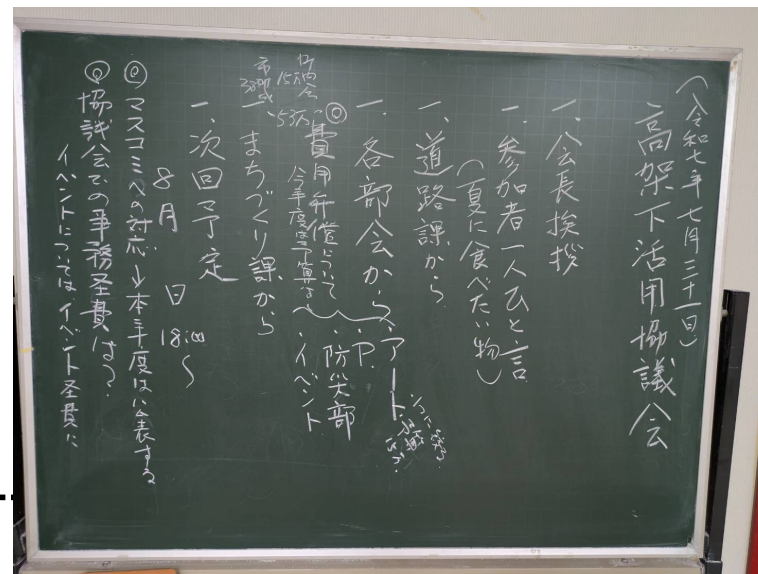 (令和七年七月三十一日)
高架下活用協議会
一、会長挨拶
一、参加者一人ひと言
(夏に食べたい物)
一、道路課から
一、各部会から
・アート
・P.
・防災部
・イベント
◎費用弁償について
今年度は予算なし
一、まちづくり課から
一、次回予定
8月 日 18:00〜
◎マスコミへの対応→本年度は公表する
◎協議会での事務経費は?
イベントについてはイベント経費に